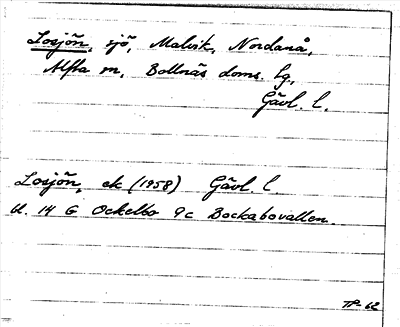 Losjön, sjö, Malvik, Nordanå,
Alfta sn, Bollnäs doms. lg,
Gävl. l.
Losjön, ek (1958) Gävl. l.
bl. 14 G Ockelbo 9c Bockabovallen.
TP-62